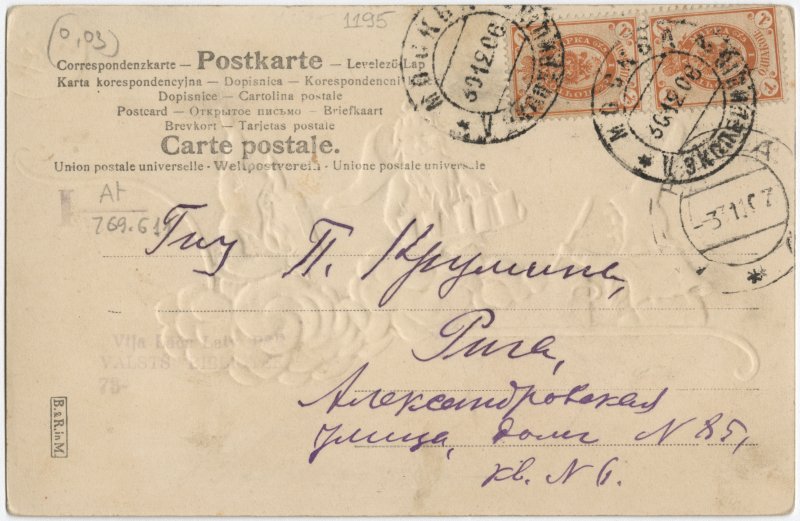 0,03
1195
Correspondenzkarte — Postkarte — Levelező-Lap
Karta korespondencyjna — Dopisnica — Korespondencni
Dopisnice — Cartolina postale
Postcard — Открытое письмо — Briefkaart
Brevkort — Tarjetas postale
Carte postale.
Union postale universelle - Weltpostverein - Unione postale universale
МОСКВА
30.12.06
МОСКВА
30.12.06
3 ЭКСПЕДИЦ
769.6
П. Крумина,
Рига,
Александровская
улица, домъ N 85,
кв. N 6.
VALSTS
75-
B.&R.in M.